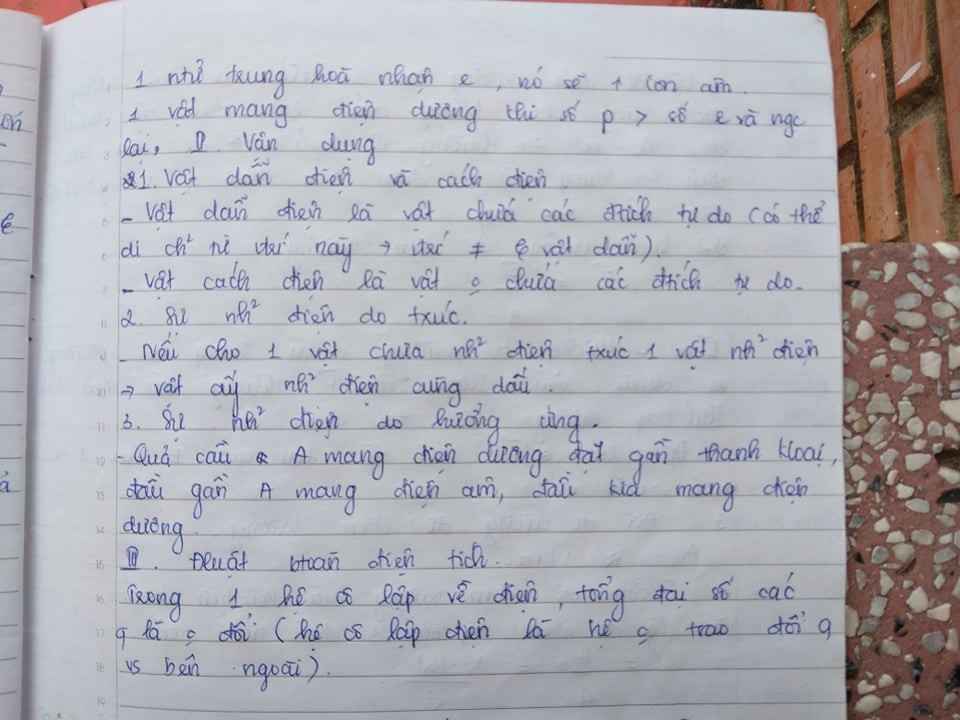 1 ntử trung hoà nhận e, nó sẽ → ion âm.
1 vật mang điện dương thì số p > số e và ngc
lại, II Vận dụng
1. Vật dẫn điện và cách điện
- Vật dẫn điện là vật chứa các đtích tự do (có thể
di ch² từ vtrí này → vtrí ≠ ê vật dẫn).
- Vật cách điện là vật o chứa các đtích tự do.
2. Sự nh² điện do txúc.
- Nếu cho 1 vật chưa nh² điện txúc 1 vật nh² điện
→ vật ấy nh² điện cùng dấu.
3. Sự nh² điện do hưởng ứng.
- Quả cầu A mang điện dương đặt gần thanh kloại,
đầu gần A mang điện âm, đầu kia mang điện
dương.
III. Đluật btoàn điện tích.
Trong 1 hệ cô lập về điện, tổng đại số các
q là o đổi (hệ cô lập điện là hệ o trao đổi q
vs bên ngoài).
ả